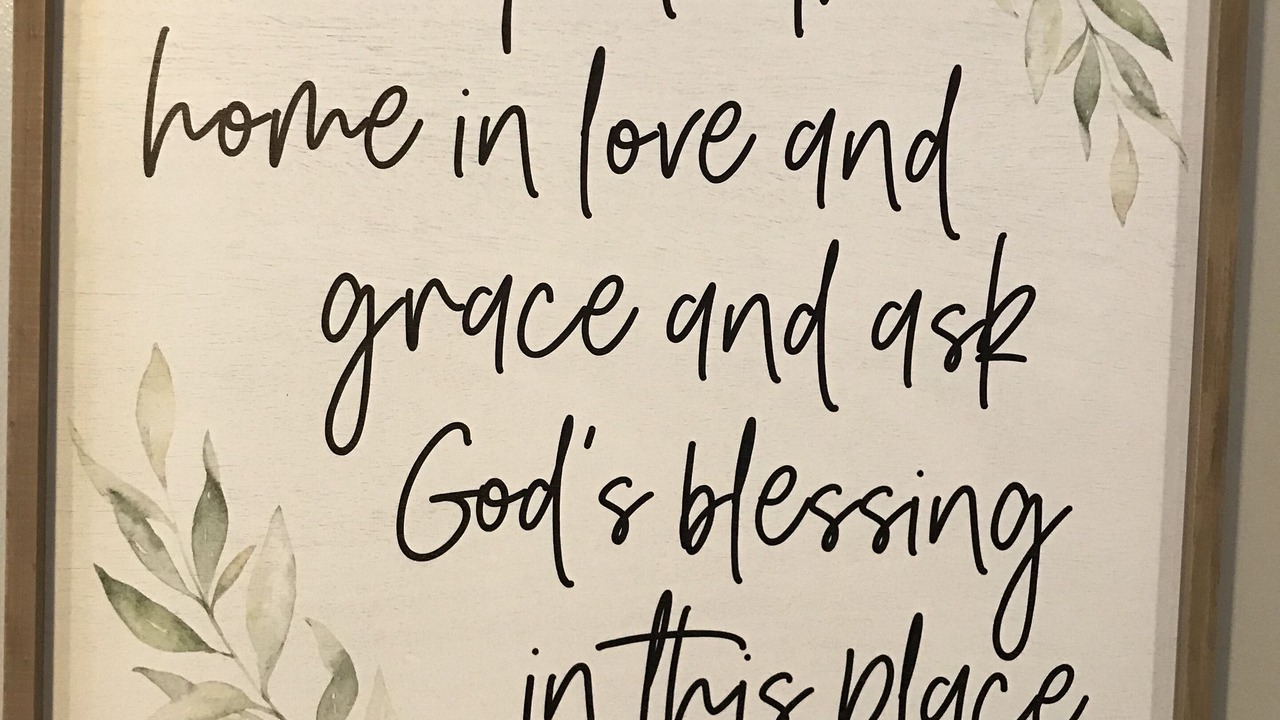 home in love and
grace and ask
God's blessing
in this place